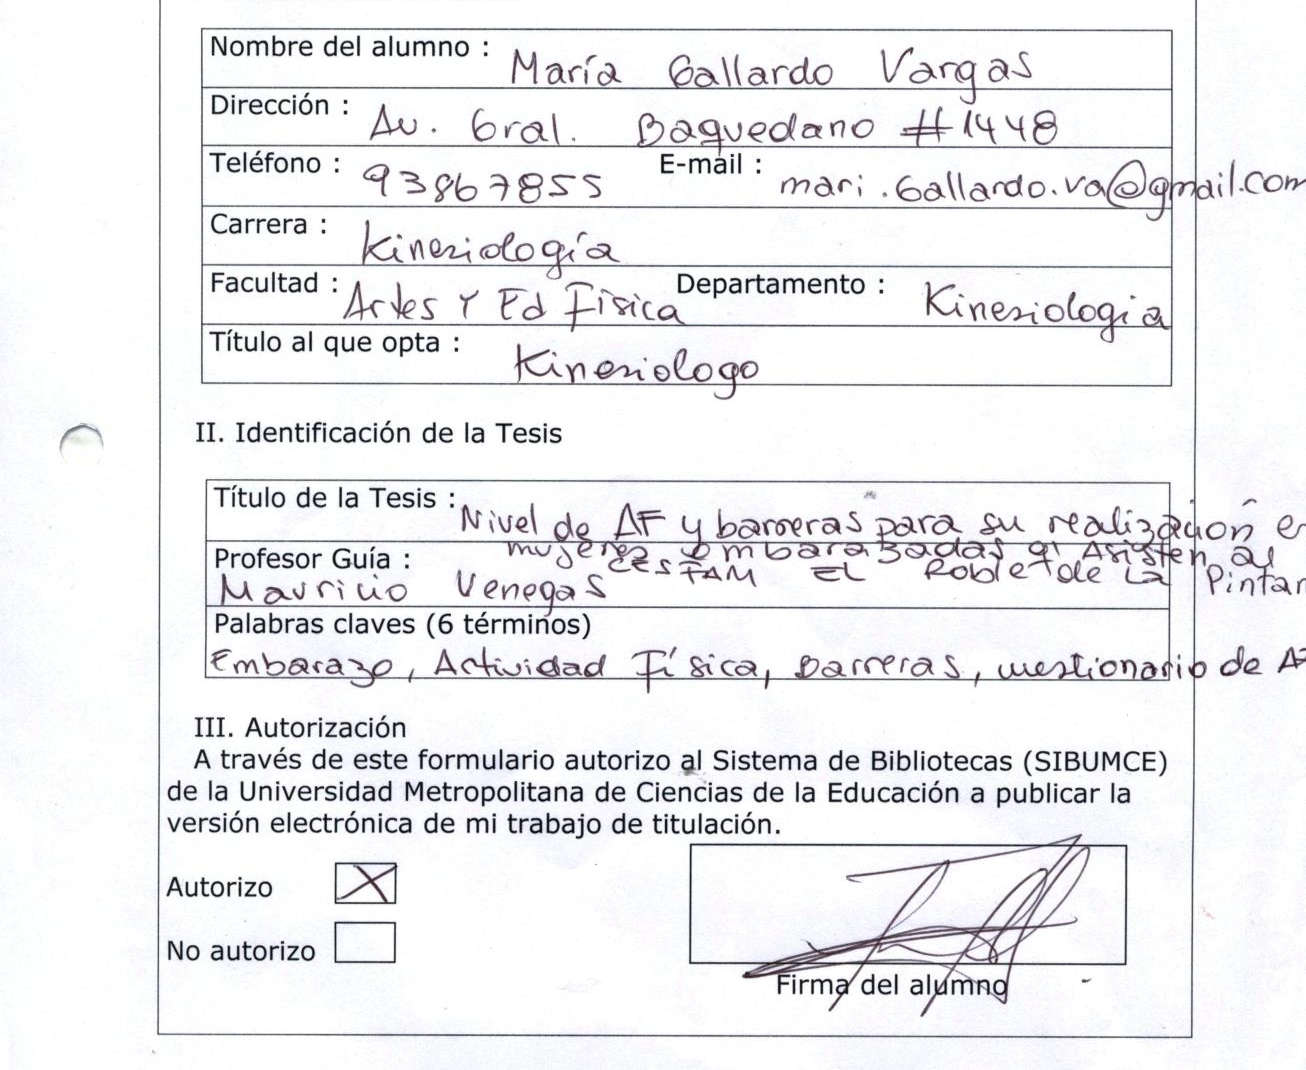 Nombre del alumno : María Gallardo Vargas
Dirección : Av. Gral. Baquedano #1448
Teléfono : 93867855 E-mail : mari.Gallardo.va@gmail.com
Carrera : Kinesiología
Facultad : Artes Y Ed Física Departamento : Kinesiologia
Título al que opta : Kinesiologo
II. Identificación de la Tesis
Título de la Tesis : Nivel de AF y barreras para su realización en
mujeres embarazadas q' Asisten al
CESFAM EL Roble de La Pintan
Profesor Guía :
Mauricio Venegas
Palabras claves (6 términos)
Embarazo, Actividad Física, Barreras, cuestionario de AF
III. Autorización
A través de este formulario autorizo al Sistema de Bibliotecas (SIBUMCE)
de la Universidad Metropolitana de Ciencias de la Educación a publicar la
versión electrónica de mi trabajo de titulación.
Autorizo X
No autorizo
Firma del alumno